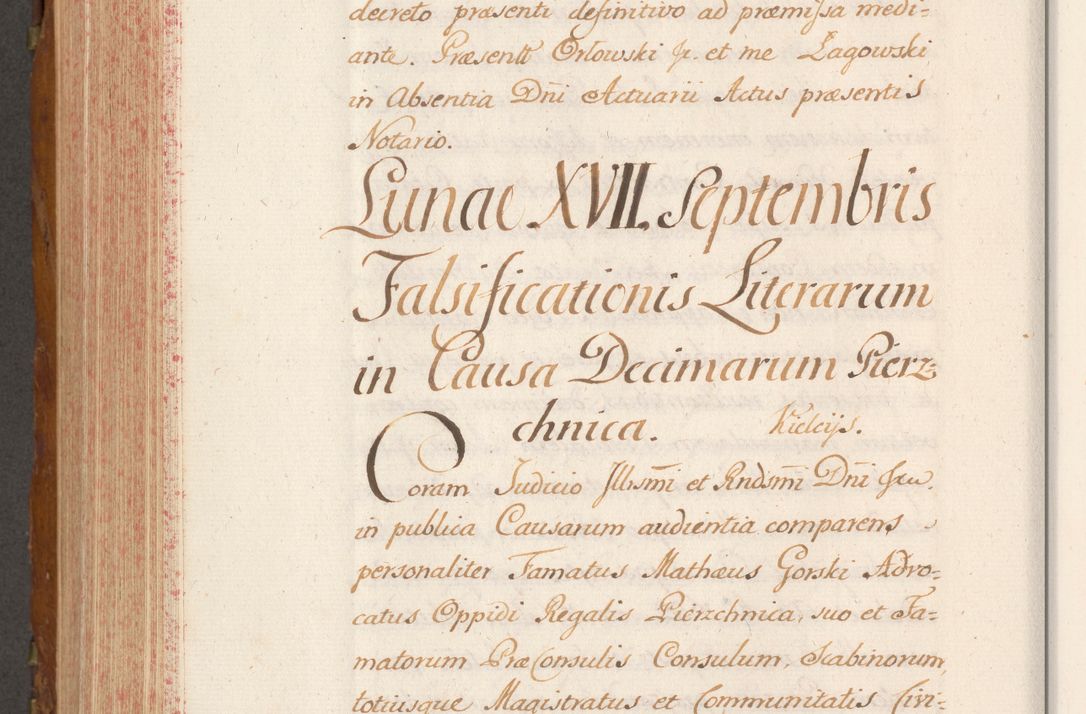 decreto præsenti definitivo ad præmissa medi=
ante. Præsentt Orłowski Jr. et me Łagowski
in Absentia Dni Actuarii Actus præsentis
Notario.
Lunae XVII. Septembris
Falsificationis Literarum
in Causa Decimarum Pierz=
chnica. Kielcijs.
Coram Judicio Illismi et Rndsmi Dni
in publica Causarum audientia comparens
personaliter Famatus Mathæus Gorski Advo=
catus Oppidi Regalis Pierzchnica, suo et Fa=
matorum PræConsulis Consulum, Scabinorum,
totiusque Magistratus et Communitatis Civi=